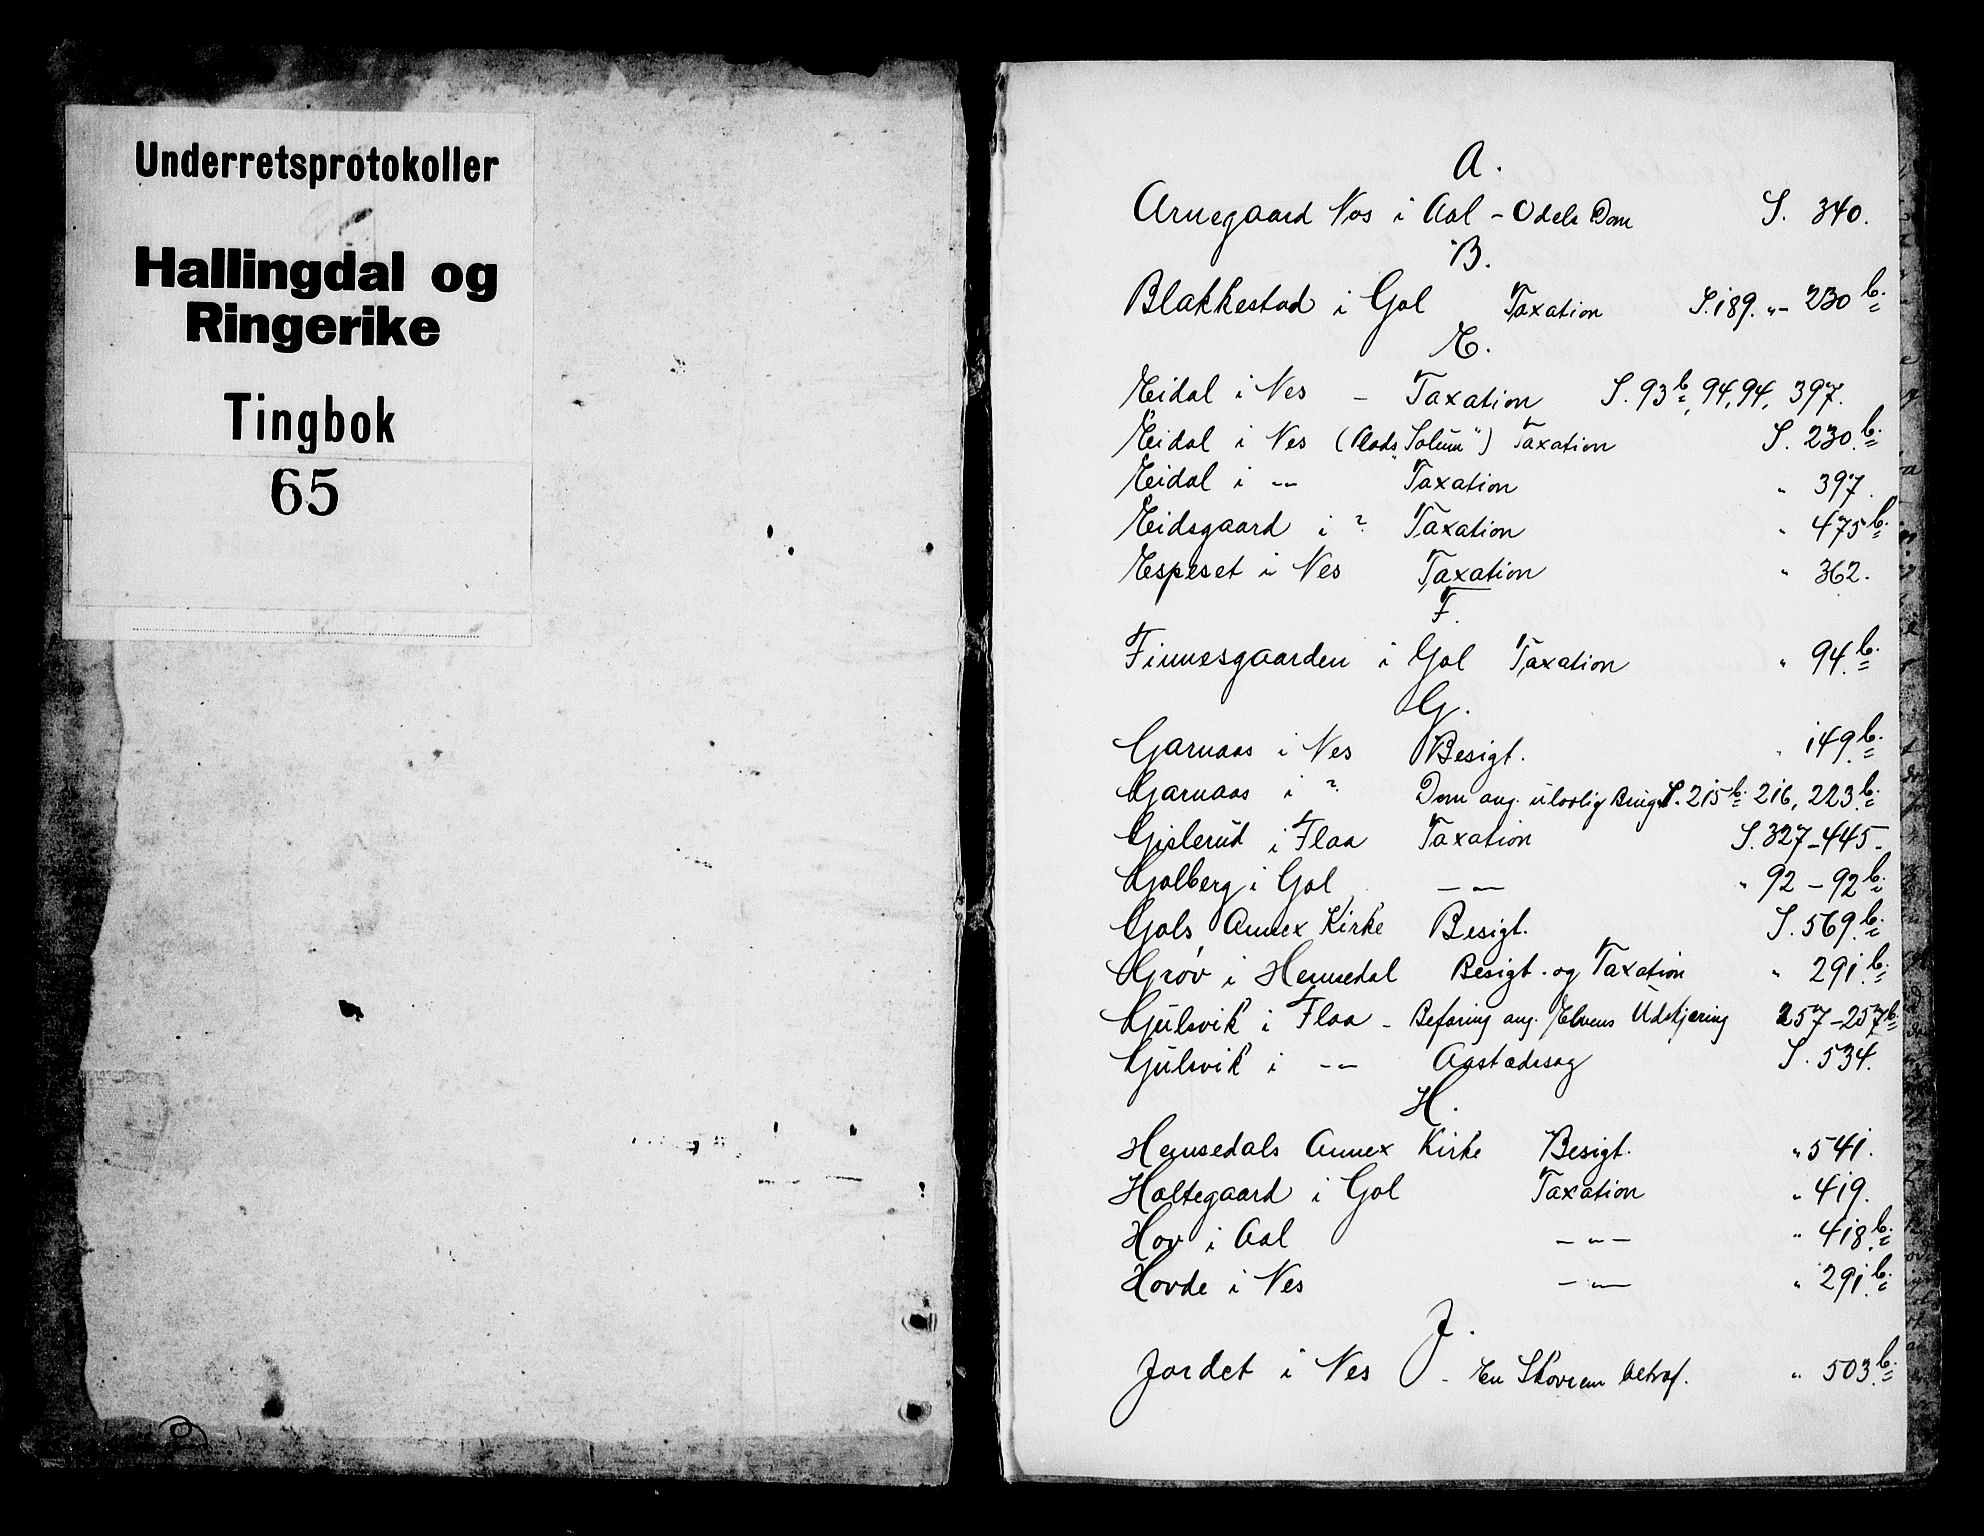 Underretsprotokoller
Hallingdal og
Ringerike
Tingbok
65
A.
Arnegaard Nos i Aal - Odels Dom S. 340.
B.
Blakkestad i Gol Taxation S. 189. „- 230 b.
E.
Eidal i Nes - Taxation S. 93 b, 94, 94, 397.
Eidal i Nes (Plads „Solum") Taxation S. 230 b.
Eidal i -„- Taxation „ 397.
Eidsgaard i ? Taxation „ 475 b.
Espeset i Nes Taxation „ 362.
F.
Finnesgaarden i Gol Taxation „ 94. b.
G.
Garnaas i Nes Besigt. „ 149 b.
Garnaas i ? Dom ang. ulovlig Brug S. 215 b. 216, 223 b.
Gislerud i Flaa Taxation S. 327-445-
Golberg i Gol -„- „ 92 - 92 b.
Gols Annex Kirke Besigt. S. 569. b.
Grøv i Hemsedal Besigt. og Taxation „ 291. b.
Gulsvik i Flaa - Befaring ang. Elvens Udskjæring 257-257 b.
Gulsvik i -„- Aastædesag S. 534.
H.
Hemsedals Annex Kirke Besigt. „ 541.
Haltegaard i Gol Taxation „ 419.
Hov i Aal -„- „ 418. b.
Hovde i Nes -„- „ 291. b.
J.
Jordet i Nes - En Skovrem betræf. „ 503. b.